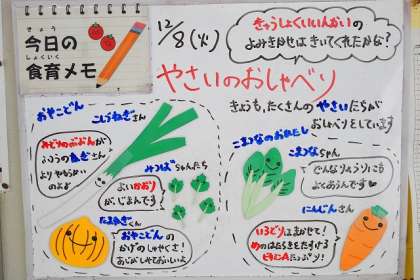 きょう
今日の
しょくいく
食育メモ
12/8(火)
きゅうしょくいいんかいの
よみきかせは きいてくれたかな?
やさいのおしゃべり
きょうも、たくさんの やさいたちが
おしゃべりをしています
おやこどん
こねぎさん
みどりのぶぶんが
ふつうのねぎさん
よりやわらかい
のよ♪
みつばちゃんたち
よいかおり
がじまんです
たまねぎくん
おやこどんの
かげのしゅやくさ!
あじがしみておいしいよ
こまつなのおひたし
こまつなちゃん
どんなりょうりにも
よくあうんです♥
にんじんさん
いろどりはまかせて!
めのはたらきをたすける
ビタミンAたっぷり!